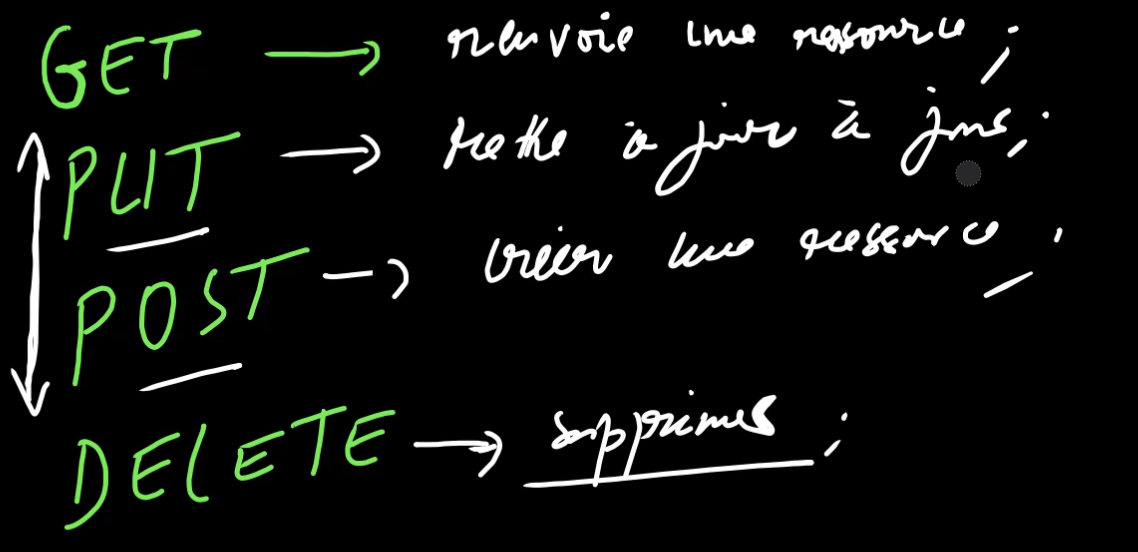 GET → renvoie une ressource ;
PUT → mettre à jour à jour ;
POST → créer une ressource ;
DELETE → supprimer ;